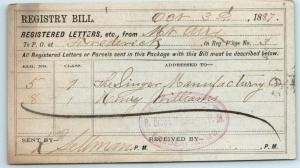 REGISTRY BILL. Oct 3 1887.
REGISTERED LETTERS, etc., from Mt. Airy
To P. O. at Frederick In Reg. P'kge No. 3
All Registered Letters or Parcels sent in this Package with this Bill must be described below.
REG. NO. CLASS. ADDRESSED TO—
5 1 The Singer Manufacturing Co.
8 1 Williams
SENT BY RECEIVED BY
P.M. P.M.